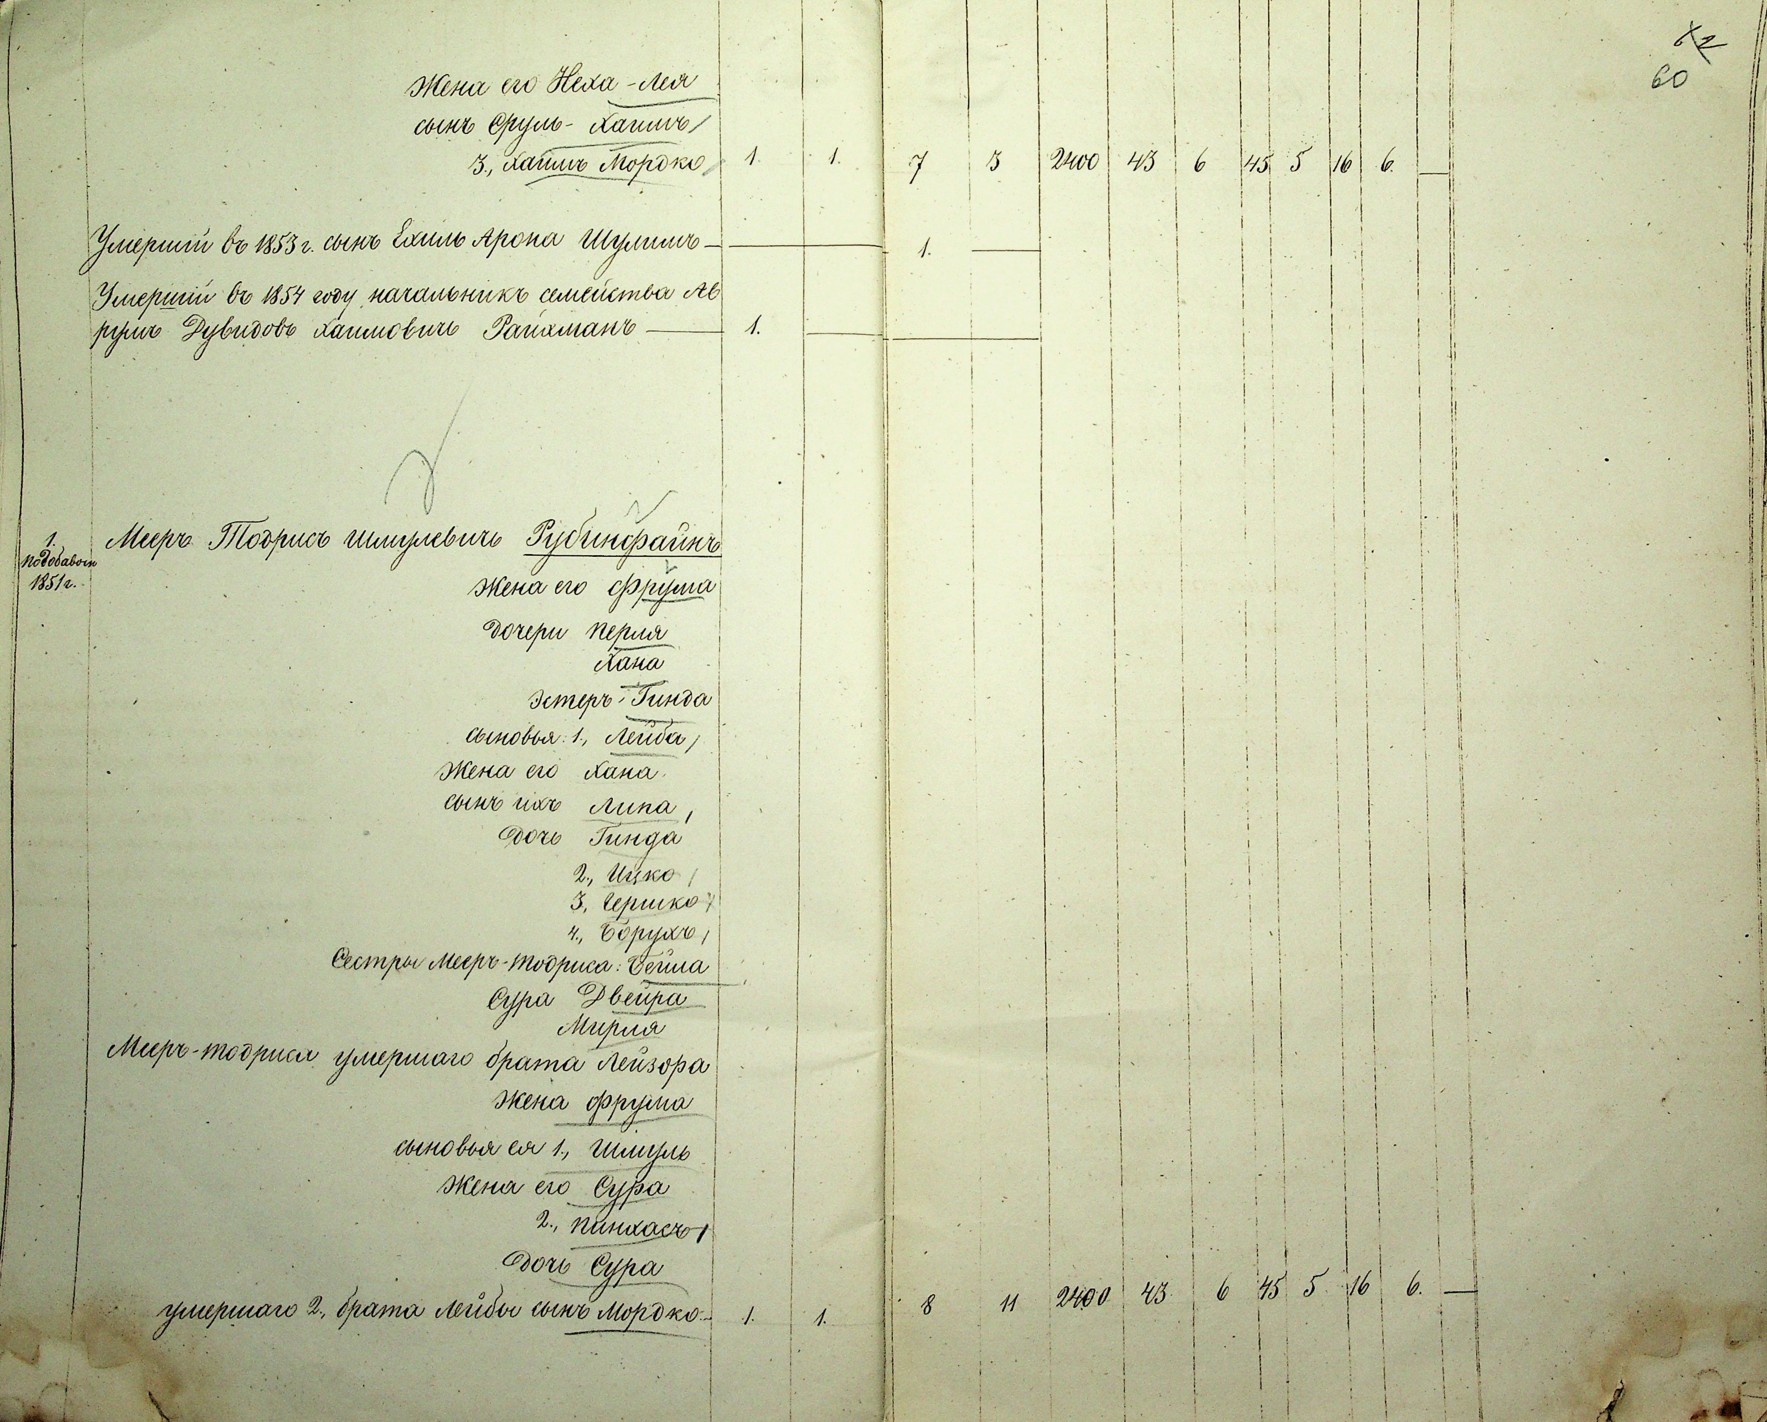 60
Жена его Неха-Лея
сынъ Сруль-Хаимъ
3., Хаимъ Мордко 1. 1. 7 3 2400 43 6 45 5 16 6. —
Умершій въ 1853 г. сынъ Ехиль Арона Шулимъ — 1. —
Умершій въ 1854 году начальникъ семейства Ав
румъ Дувидовъ Хаимовичъ Райхманъ — 1. —
1. Мееръ Тодрисъ Шмулевичъ Рубинфайнъ
по добавоч
1851 г.
Жена его Фрума
дочери Перля
Хана
Эстеръ-Гинда
сыновья: 1., Лейба
Жена его Хана
сынъ ихъ Липа
дочь Гинда
2., Ицко
3., Гершко
4., Борухъ
Сестры Мееръ-Тодриса: Бейла
Сура Двейра
Мирля
Мееръ-Тодриса умершаго брата Лейзора
Жена Фрума
сыновья ея 1., Шмуль
Жена его Сура
2., Пинхасъ
дочь Сура
умершаго 2., брата Лейбы сынъ Мордко 1. 1. 8 11 2400 43 6 45 5 16 6. —